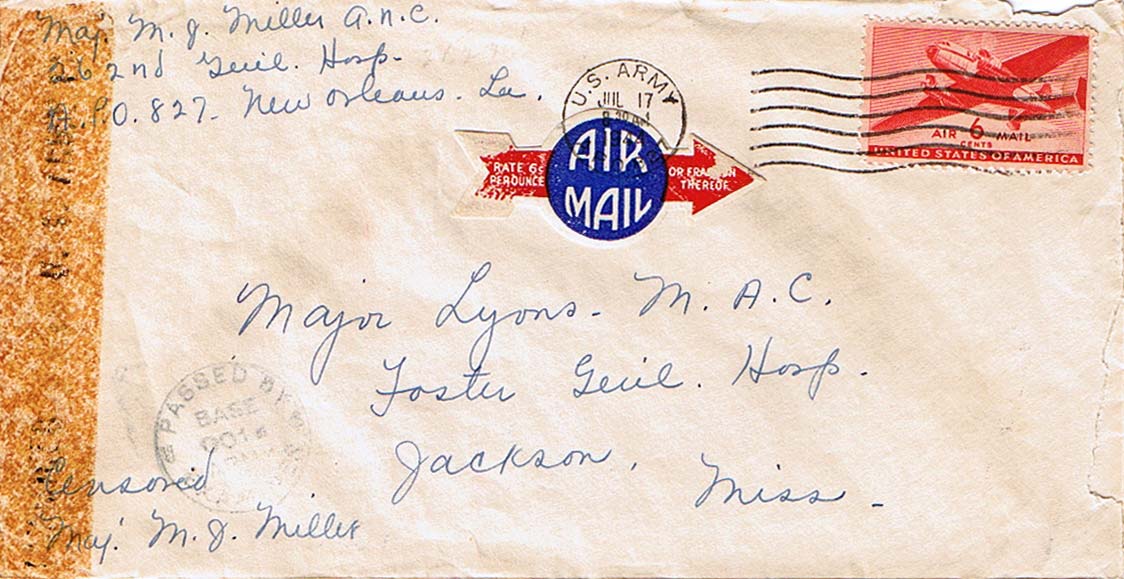 Maj. M. J. Miller A.N.C.
262nd Geul. Hosp.
A.P.O. 827. New Orleans. La.
U.S. ARMY
JUL 17
AIR
MAIL
RATE 6¢
PER OUNCE
OR FRACTION
THEREOF
AIR 6 MAIL
CENTS
UNITED STATES OF AMERICA
Major Lyons - M. A. C.
Foster Geul. Hosp.
Jackson,
Miss -
PASSED BY
BASE
Censored
Maj. M. J. Miller